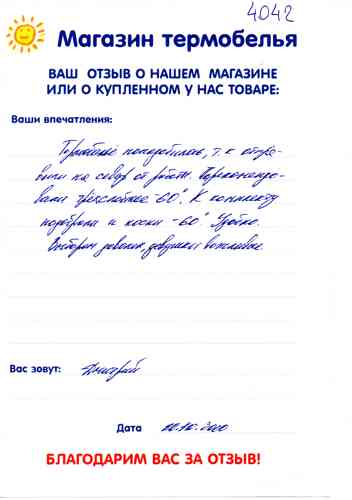 4042
Магазин термобелья
ВАШ ОТЗЫВ О НАШЕМ МАГАЗИНЕ
ИЛИ О КУПЛЕННОМ У НАС ТОВАРЕ:
Ваши впечатления:
Термобелье понадобилось, т.к отпра-
вили на север от работы. Порекомендо-
вали трёхслойное -60°. К комплекту
подобрали и носки -60°. Удобно.
Выбором доволен, девушки вежливые.
Вас зовут: Дмитрий
Дата
БЛАГОДАРИМ ВАС ЗА ОТЗЫВ!